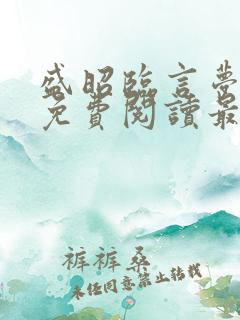 盛昭臨言夢
免費閱讀最
裤裤桑
未任同意禁止转载